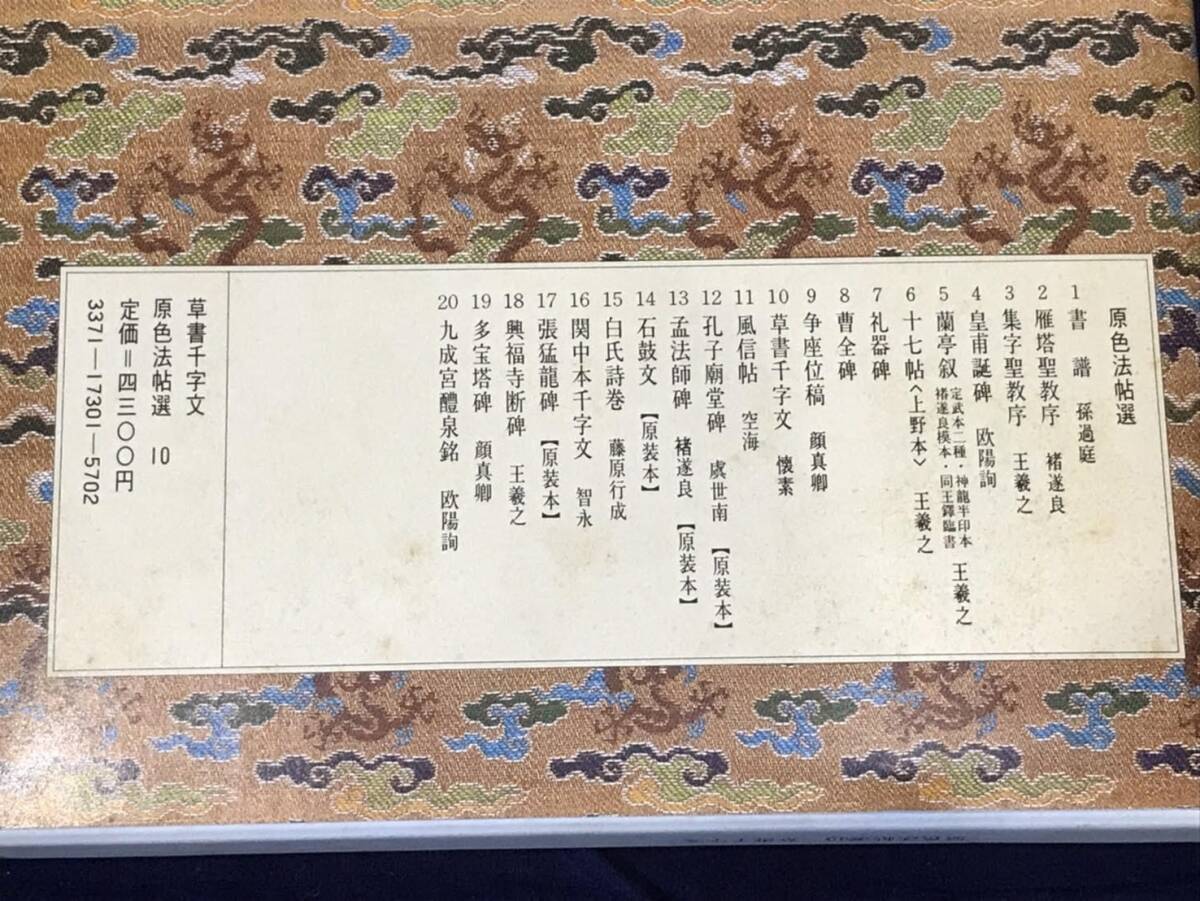 原色法帖選
1 書譜 孫過庭
2 雁塔聖教序 褚遂良
3 集字聖教序 王羲之
4 皇甫誕碑 欧陽詢
5 蘭亭叙 定武本二種・神龍半印本 褚遂良模本・同王鐸臨書 王羲之
6 十七帖〈上野本〉 王羲之
7 礼器碑
8 曹全碑
9 争座位稿 顔真卿
10 草書千字文 懐素
11 風信帖 空海
12 孔子廟堂碑 虞世南【原装本】
13 孟法師碑 褚遂良【原装本】
14 石鼓文【原装本】
15 白氏詩巻 藤原行成
16 関中本千字文 智永
17 張猛龍碑【原装本】
18 興福寺断碑 王羲之
19 多宝塔碑 顔真卿
20 九成宮醴泉銘 欧陽詢
草書千字文
原色法帖選 10
定価=四三〇〇円
3371—17301—5702